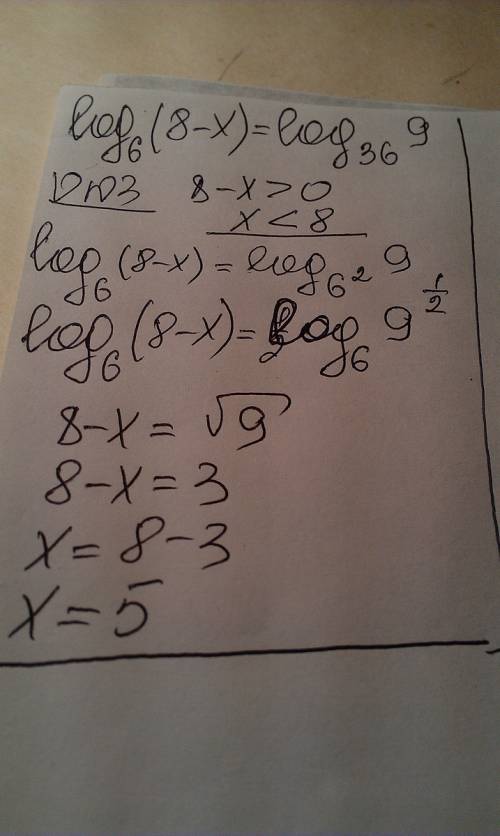 log₆(8-x)=log₃₆9
ОДЗ 8-x>0
x<8
log₆(8-x)=log₆²9
log₆(8-x)=log₆9^½
8-x=√9
8-x=3
x=8-3
x=5